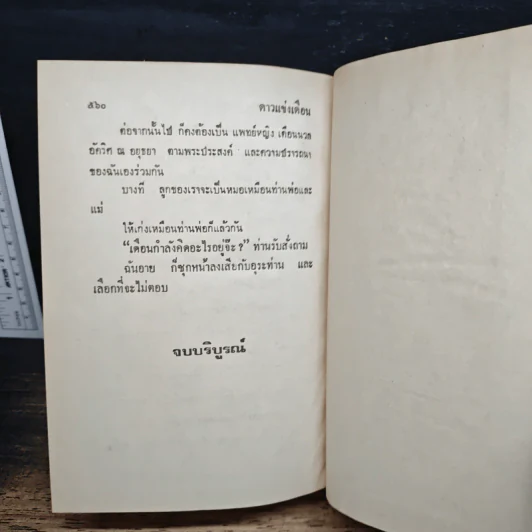 ๕๖๐ ดาวแข่งเดือน
ต่อจากนั้นไป ก็คงต้องเป็น แพทย์หญิง เดือนนวล
อัคริศ ณ อยุธยา ตามพระประสงค์ และความปรารถนา
ของฉันเองร่วมกัน
บางที ลูกของเราจะเป็นหมอเหมือนท่านพ่อและ
แม่
ให้เก่งเหมือนท่านพ่อก็แล้วกัน
“เดือนกำลังคิดอะไรอยู่จ๊ะ?” ท่านรับสั่งถาม
ฉันอาย ก็ซุกหน้าลงเสียกับอุระท่าน และ
เลือกที่จะไม่ตอบ
จบบริบูรณ์